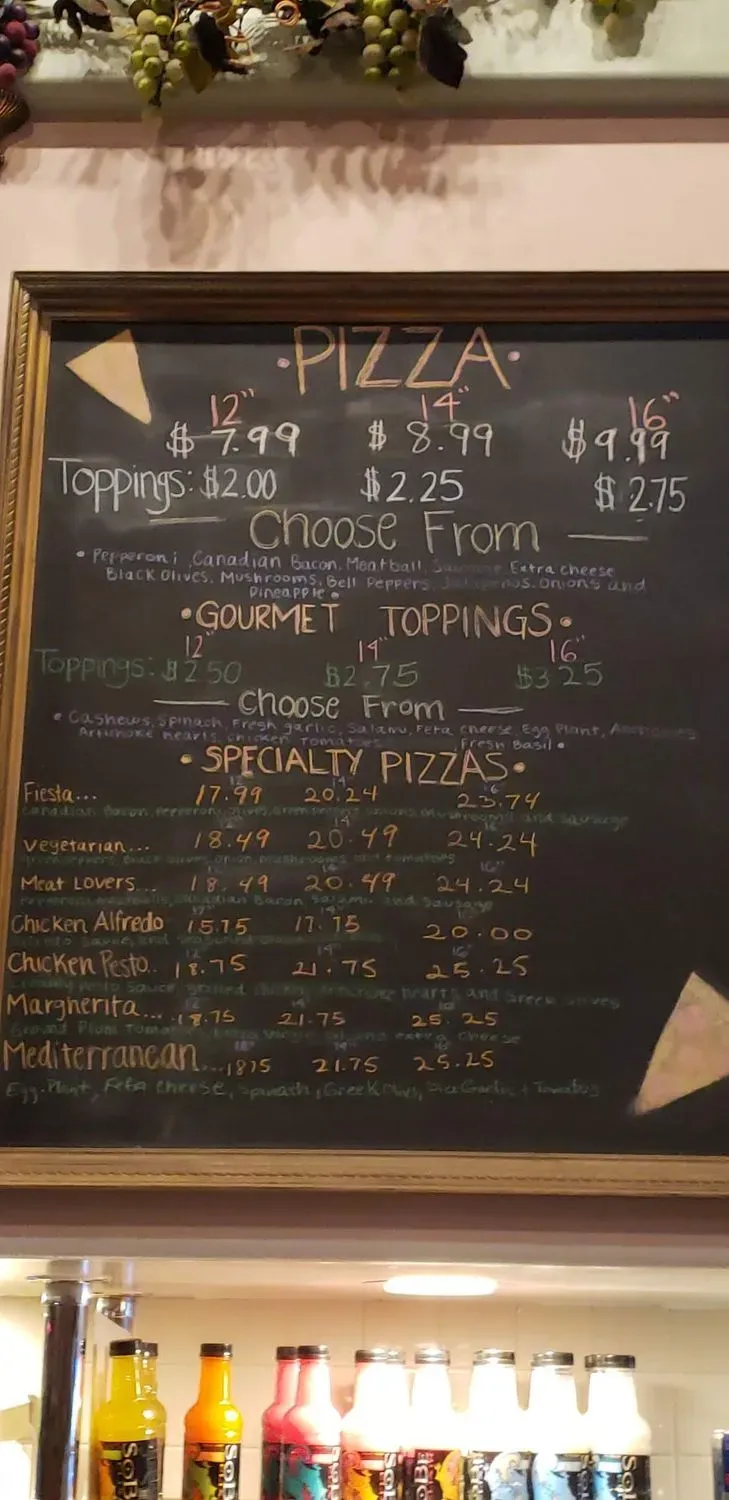 • PIZZA •
12" 14" 16"
$ 7.99 $ 8.99 $9.99
Toppings: $2.00 $2.25 $2.75
Choose From
• Pepperoni, Canadian Bacon, Meatball, Extra cheese
Black Olives, Mushrooms, Bell Peppers, Jalapenos, Onions and
Pineapple •
• GOURMET TOPPINGS •
12" 14" 16"
Toppings: $2.50 $2.75 $3.25
Choose From
• Cashews, Spinach, Fresh garlic, Salami, Feta cheese, Egg Plant,
Artichoke hearts, chicken, Tomatoes, Fresh Basil •
• SPECIALTY PIZZAS •
12" 14" 16"
Fiesta... 17.99 20.24 23.74
Canadian Bacon, pepperoni, olives, mushrooms and sausage
Vegetarian... 18.49 20.49 24.24
black olives, onion, mushrooms, and tomatoes
Meat Lovers... 18.49 20.49 24.24
Canadian Bacon, salami, and sausage
Chicken Alfredo 15.75 17.75 20.00
Chicken Pesto.. 18.75 21.75 25.25
sauce, grilled hearts and Greek olives
Margherita... 18.75 21.75 25.25
extra cheese
Mediterranean...1875 21.75 25.25
Egg-Plant, Feta cheese, Spinach, Greek
SoBe
SoBe
SoBe